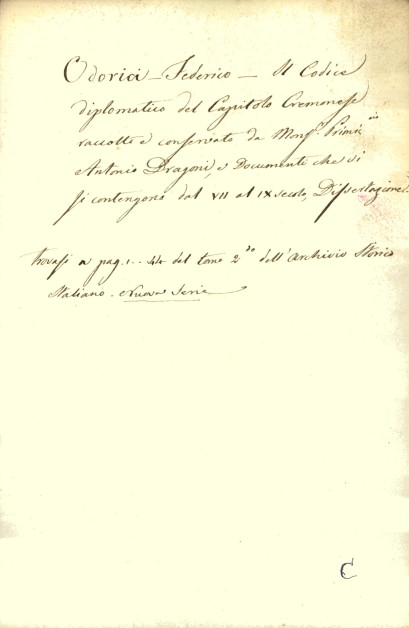 Odorici – Federico – Il Codice
diplomatico del Capitolo Cremonese
raccolto e conservato da Monsr. Primicrio
Antonio Dragoni, e Documenti che vi
si contengono dal VII al IX secolo, Dissertazione.
trovasi a pag. 1 .. 44 del tomo 2do dell'Archivio Storico
Italiano. Nuova Serie
C